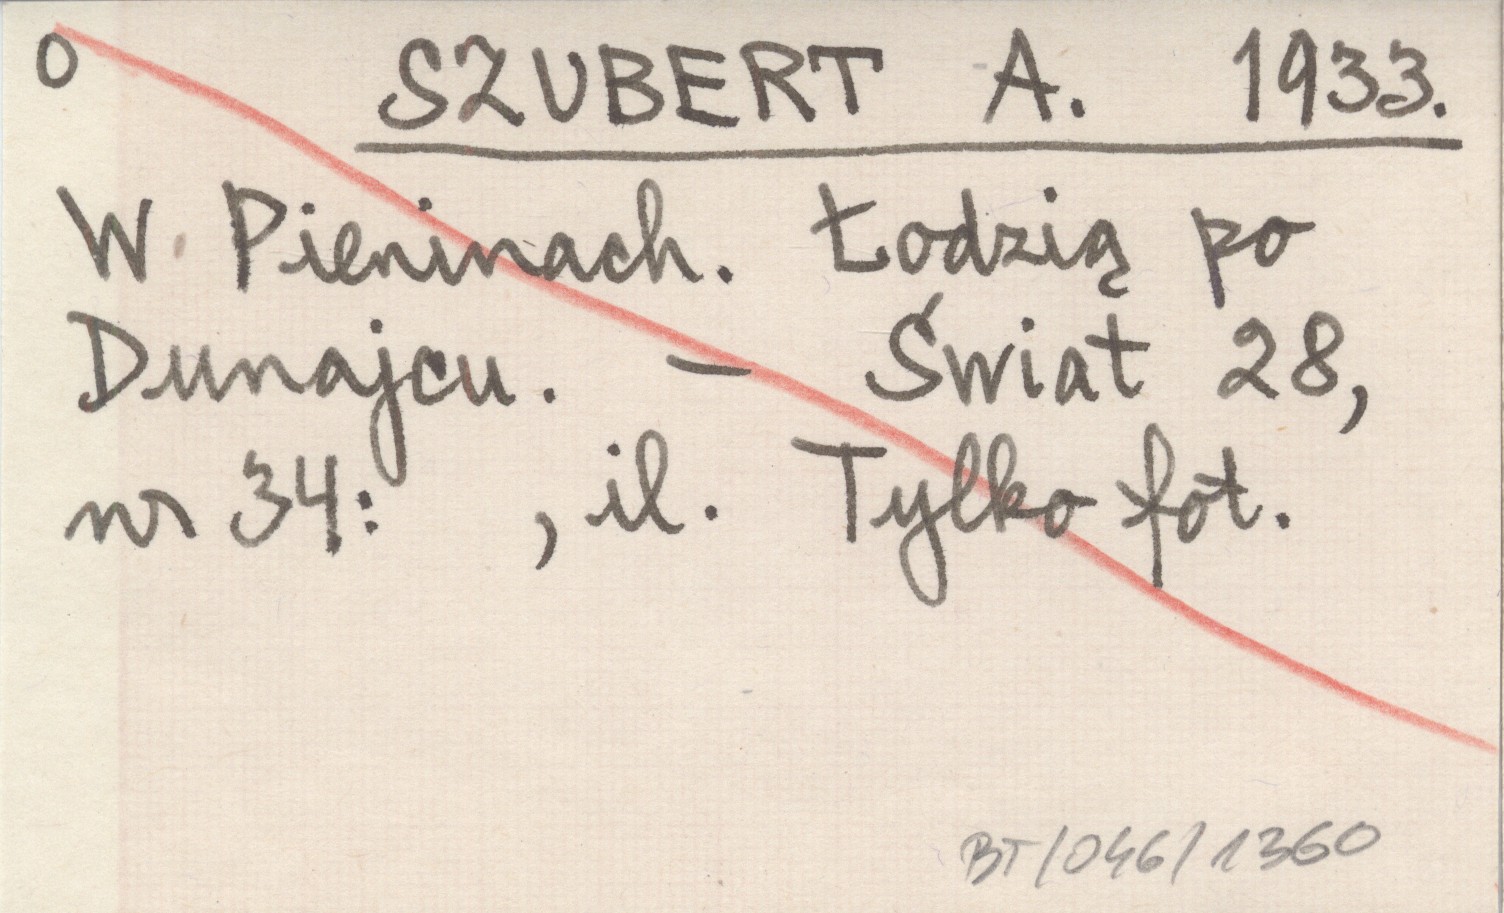 o SZUBERT A. 1933.
W Pieninach. Łodzią po
Dunajcu. – Świat 28,
nr 34: , il. Tylko fot.
BT/046/1360